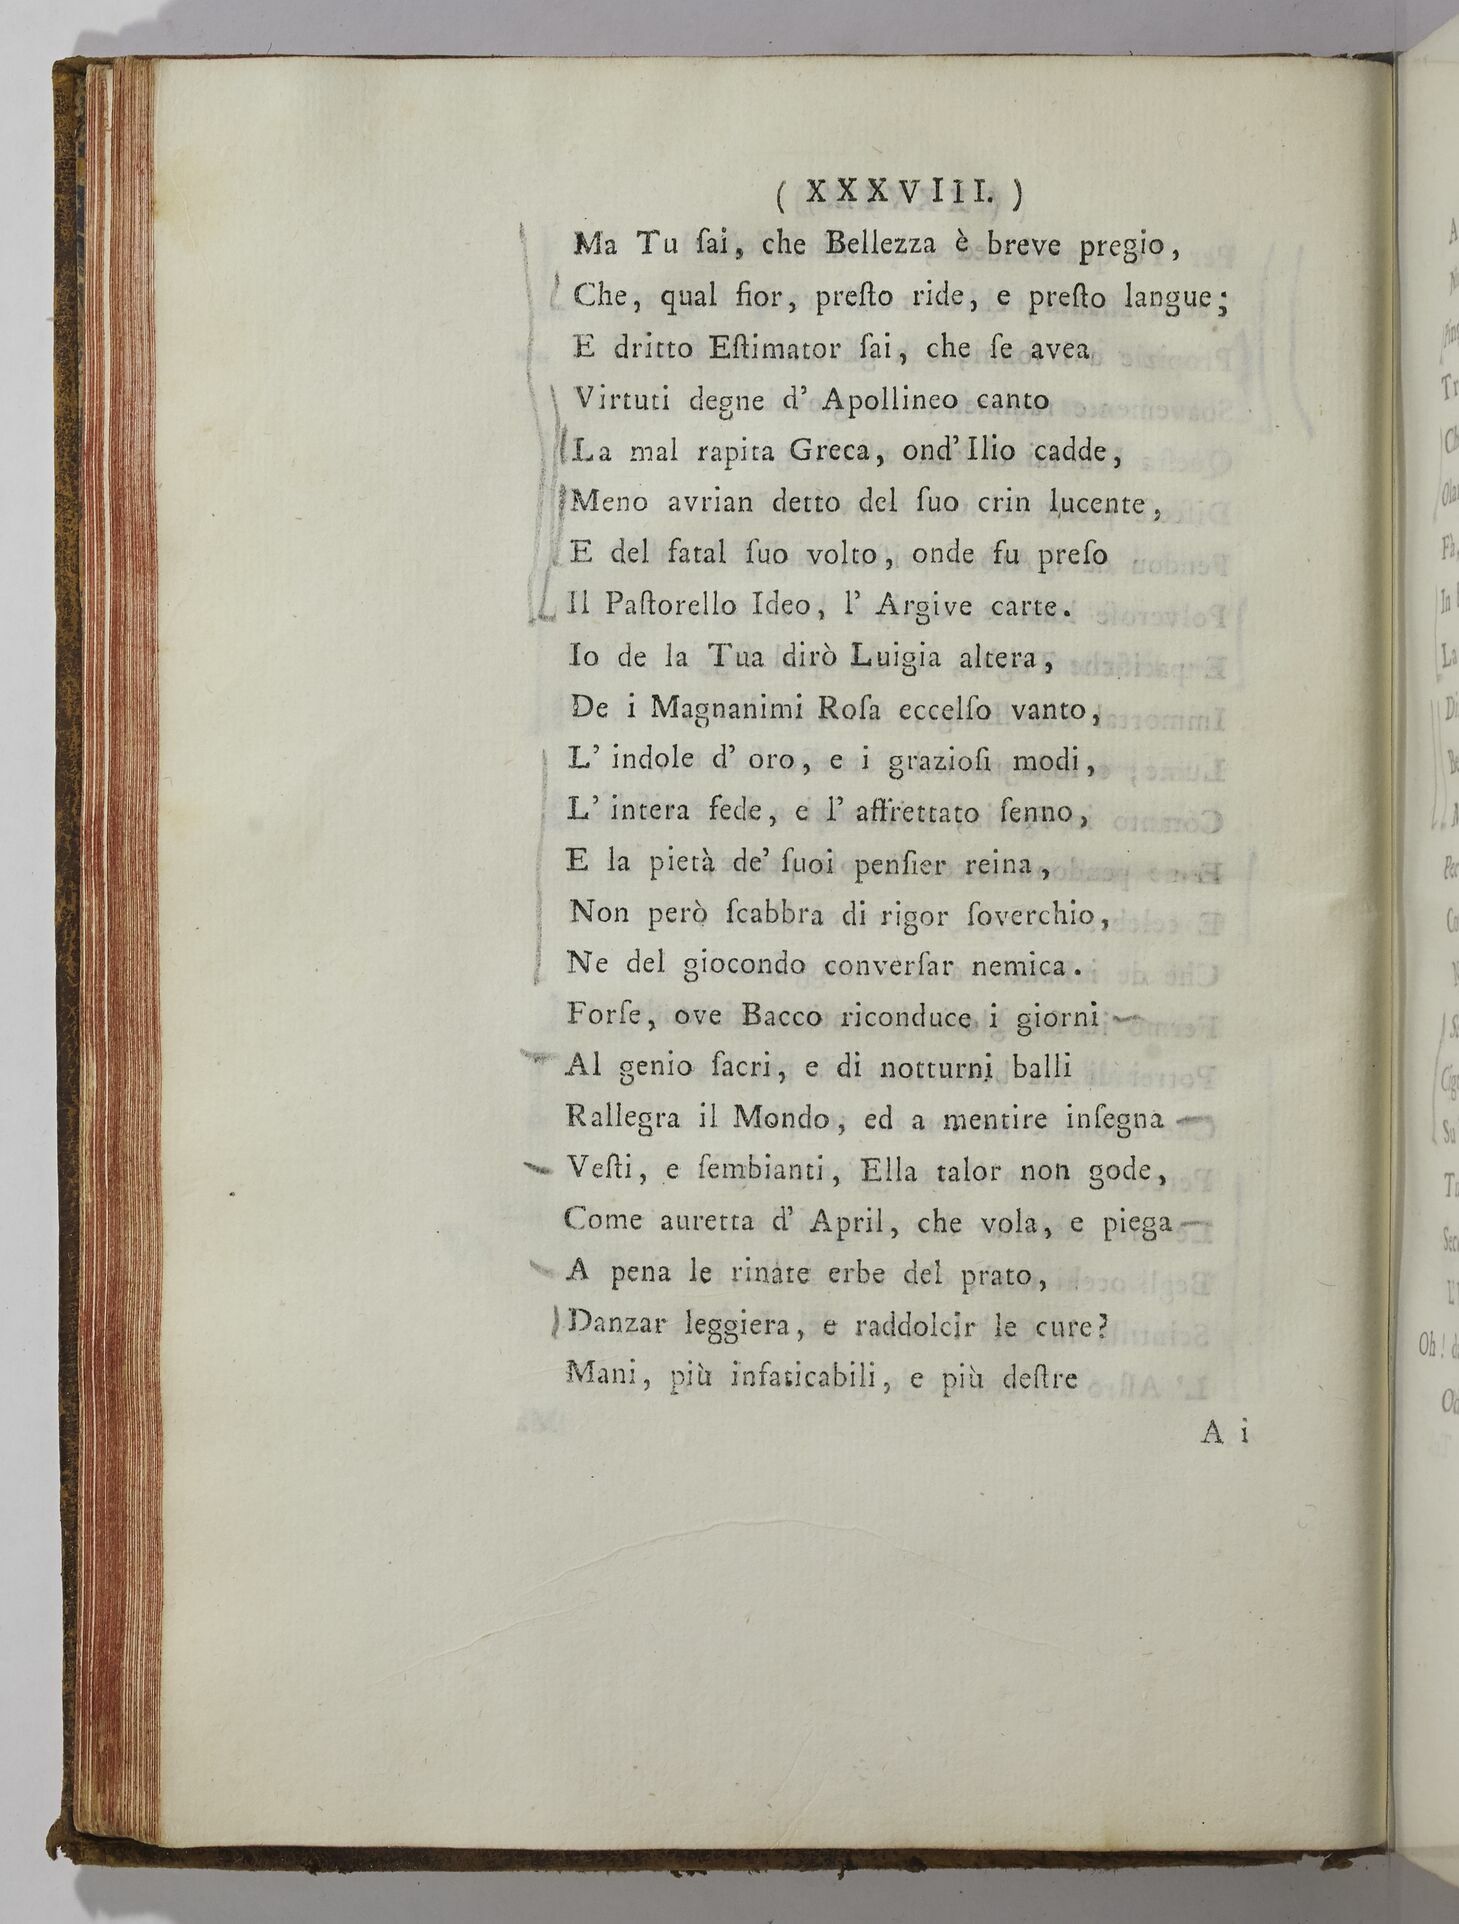 ( XXXVIII. )
Ma Tu ſai, che Bellezza è breve pregio,
Che, qual fior, preſto ride, e preſto langue;
E dritto Eſtimator ſai, che ſe avea
Virtuti degne d' Apollineo canto
La mal rapita Greca, ond' Ilio cadde,
Meno avrian detto del ſuo crin lucente,
E del fatal ſuo volto, onde fu preſo
Il Paſtorello Ideo, l' Argive carte.
Io de la Tua dirò Luigia altera,
De i Magnanimi Roſa eccelſo vanto,
L' indole d' oro, e i grazioſi modi,
L' intera fede, e l' affrettato ſenno,
E la pietà de' ſuoi penſier reina,
Non però ſcabbra di rigor ſoverchio,
Ne del giocondo converſar nemica.
Forſe, ove Bacco riconduce i giorni
Al genio ſacri, e di notturni balli
Rallegra il Mondo, ed a mentire inſegna
Veſti, e ſembianti, Ella talor non gode,
Come auretta d' April, che vola, e piega
A pena le rinate erbe del prato,
Danzar leggiera, e raddolcir le cure?
Mani, più infaticabili, e più deſtre
A i